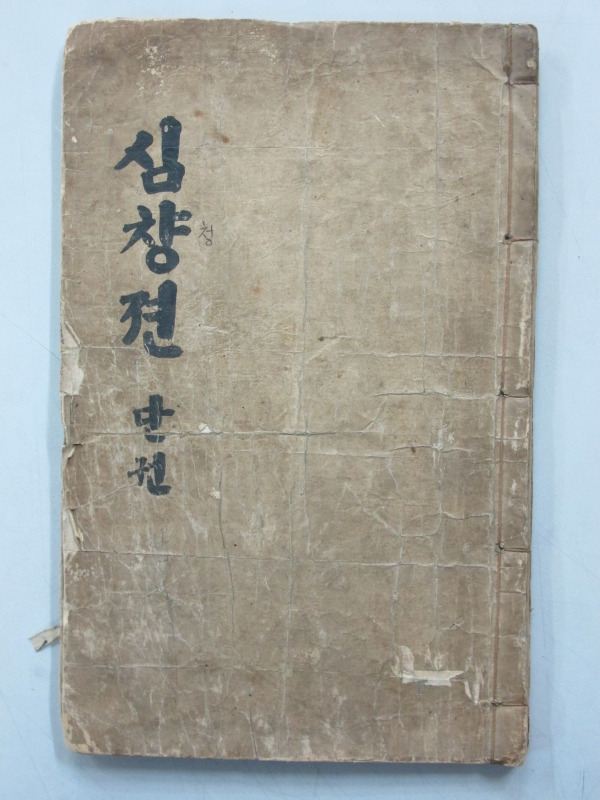 심챵젼 단권
청